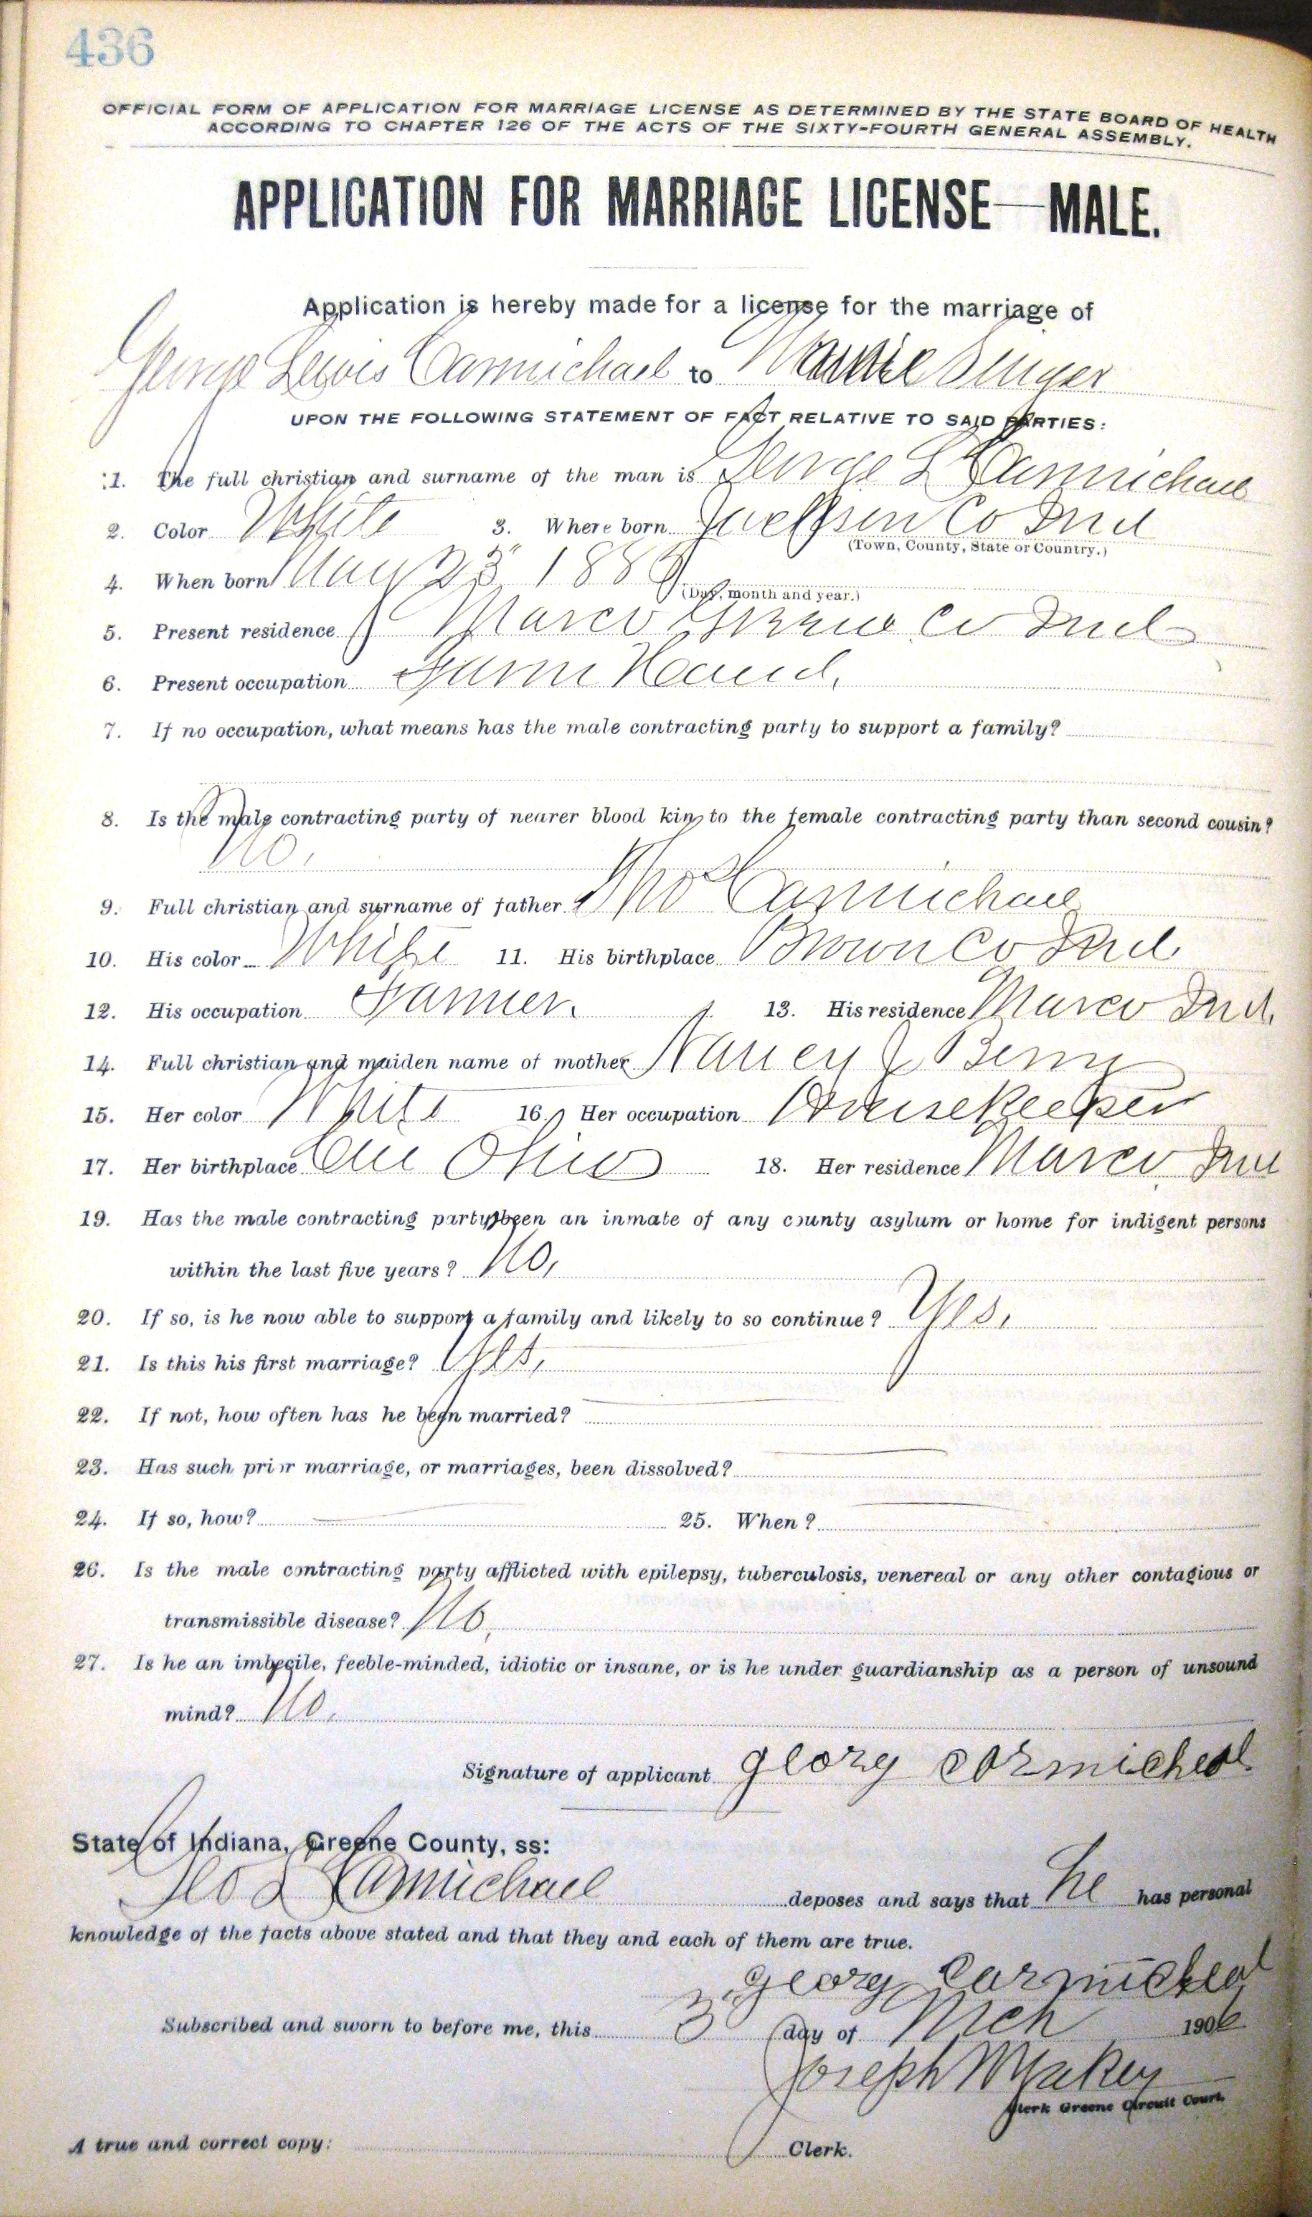 436
OFFICIAL FORM OF APPLICATION FOR MARRIAGE LICENSE AS DETERMINED BY THE STATE BOARD OF HEALTH
ACCORDING TO CHAPTER 126 OF THE ACTS OF THE SIXTY-FOURTH GENERAL ASSEMBLY.
APPLICATION FOR MARRIAGE LICENSE—MALE.
Application is hereby made for a license for the marriage of
George Lewis Carmichael to Singer
UPON THE FOLLOWING STATEMENT OF FACT RELATIVE TO SAID PARTIES:
1. The full christian and surname of the man is George L Carmichael
2. Color White 3. Where born Co Ind
(Town, County, State or Country.)
4. When born May 23" 188
(Day, month and year.)
5. Present residence Marco Greene Co Ind
6. Present occupation Farm Hand.
7. If no occupation, what means has the male contracting party to support a family?
8. Is the male contracting party of nearer blood kin to the female contracting party than second cousin?
No.
9. Full christian and surname of father Thos Carmichael
10. His color White 11. His birthplace Brown Co Ind
12. His occupation Farmer. 13. His residence Marco Ind.
14. Full christian and maiden name of mother Nancy J Berry
15. Her color White 16. Her occupation Housekeeper
17. Her birthplace Ohio 18. Her residence Marco Ind
19. Has the male contracting party been an inmate of any county asylum or home for indigent persons
within the last five years? No,
20. If so, is he now able to support a family and likely to so continue? Yes,
21. Is this his first marriage? Yes,
22. If not, how often has he been married?
23. Has such prior marriage, or marriages, been dissolved?
24. If so, how? 25. When?
26. Is the male contracting party afflicted with epilepsy, tuberculosis, venereal or any other contagious or
transmissible disease? No.
27. Is he an imbecile, feeble-minded, idiotic or insane, or is he under guardianship as a person of unsound
mind? No.
Signature of applicant georg cormicheal
State of Indiana, Greene County, ss:
Geo L Carmichael deposes and says that he has personal
knowledge of the facts above stated and that they and each of them are true.
georg carmicheal
Subscribed and sworn to before me, this 3" day of Mch 1906
Joseph
Clerk Greene Circuit Court.
A true and correct copy: Clerk.